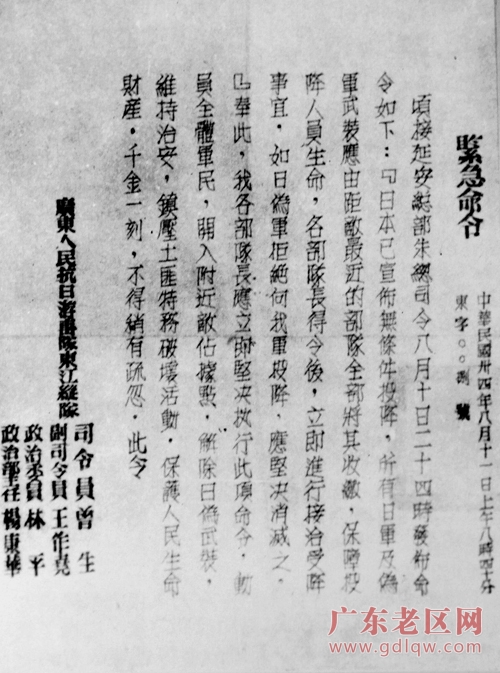 緊急命令
中華民國卅四年八月十一日上午八時四十分
東字〇〇捌號
頃接延安總部朱總司令八月十日二十四時發佈命
令如下：『日本已宣佈無條件投降，所有日軍及偽
軍武裝應由距敵最近的部隊全部將其收繳，保障投
降人員生命，各部隊長得令後，立即進行接洽受降
事宜，如日偽軍拒絕向我軍投降，應堅決消滅之。
』奉此，我各部隊長應立即堅決执行此項命令，動
員全體軍民，開入附近敵佔據點，解除日偽武裝，
維持治安，鎮壓土匪特務破壞活動，保護人民生命
財產。千金一刻，不得稍有疏忽。此令
廣東人民抗日游擊隊東江縱隊
司令員曾生
副司令員王作堯
政治委員林平
政治部主任楊康華
广东老区网
www.gdlqw.com